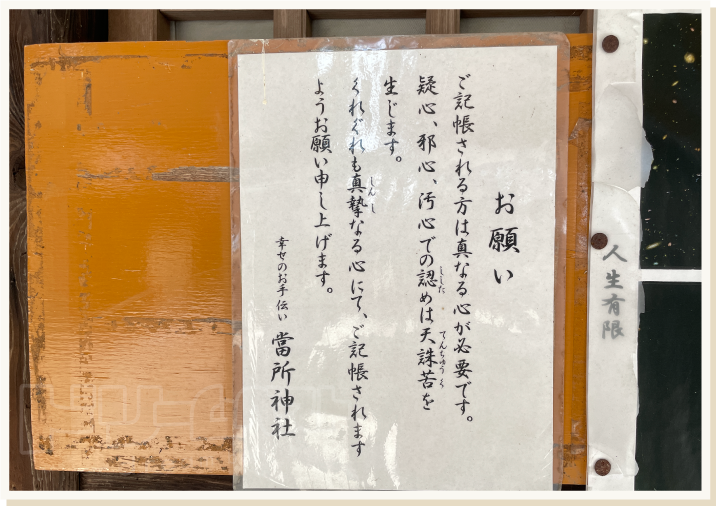 お願い
ご記帳される方は真なる心が必要です。
疑心、邪心、汚心での認めは天誅苦を
生じます。
くれぐれも真摯なる心にて、ご記帳されます
ようお願い申し上げます。
幸せのお手伝い 當所神社
人生有限